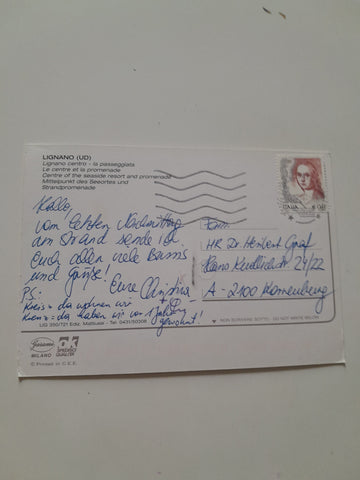 LIGNANO (UD)
Lignano centro - la passeggiata
Le centre et la promenade
Centre of the seaside resort and promenade
Mittelpunkt des Seeortes und
Strandpromenade
ITALIA
Hallo,
vom letzten Nachmittag
am Strand sende ich
Euch allen viele Bussis
und Grüße!
Eure Christina
PS:
Kreis = da wohnen wir
Kreis = da haben wir vor 1 Jahr
gewohnt!
Fam.
HR Dr. Herbert Graf
Hans 24/22
A - 2100 Korneuburg
UG 350/721 Ediz. Mattiussi - Tel. 0431/50308
NON SCRIVERE SOTTO - DO NOT WRITE BELOW
MILANO
© Printed in C.E.E.